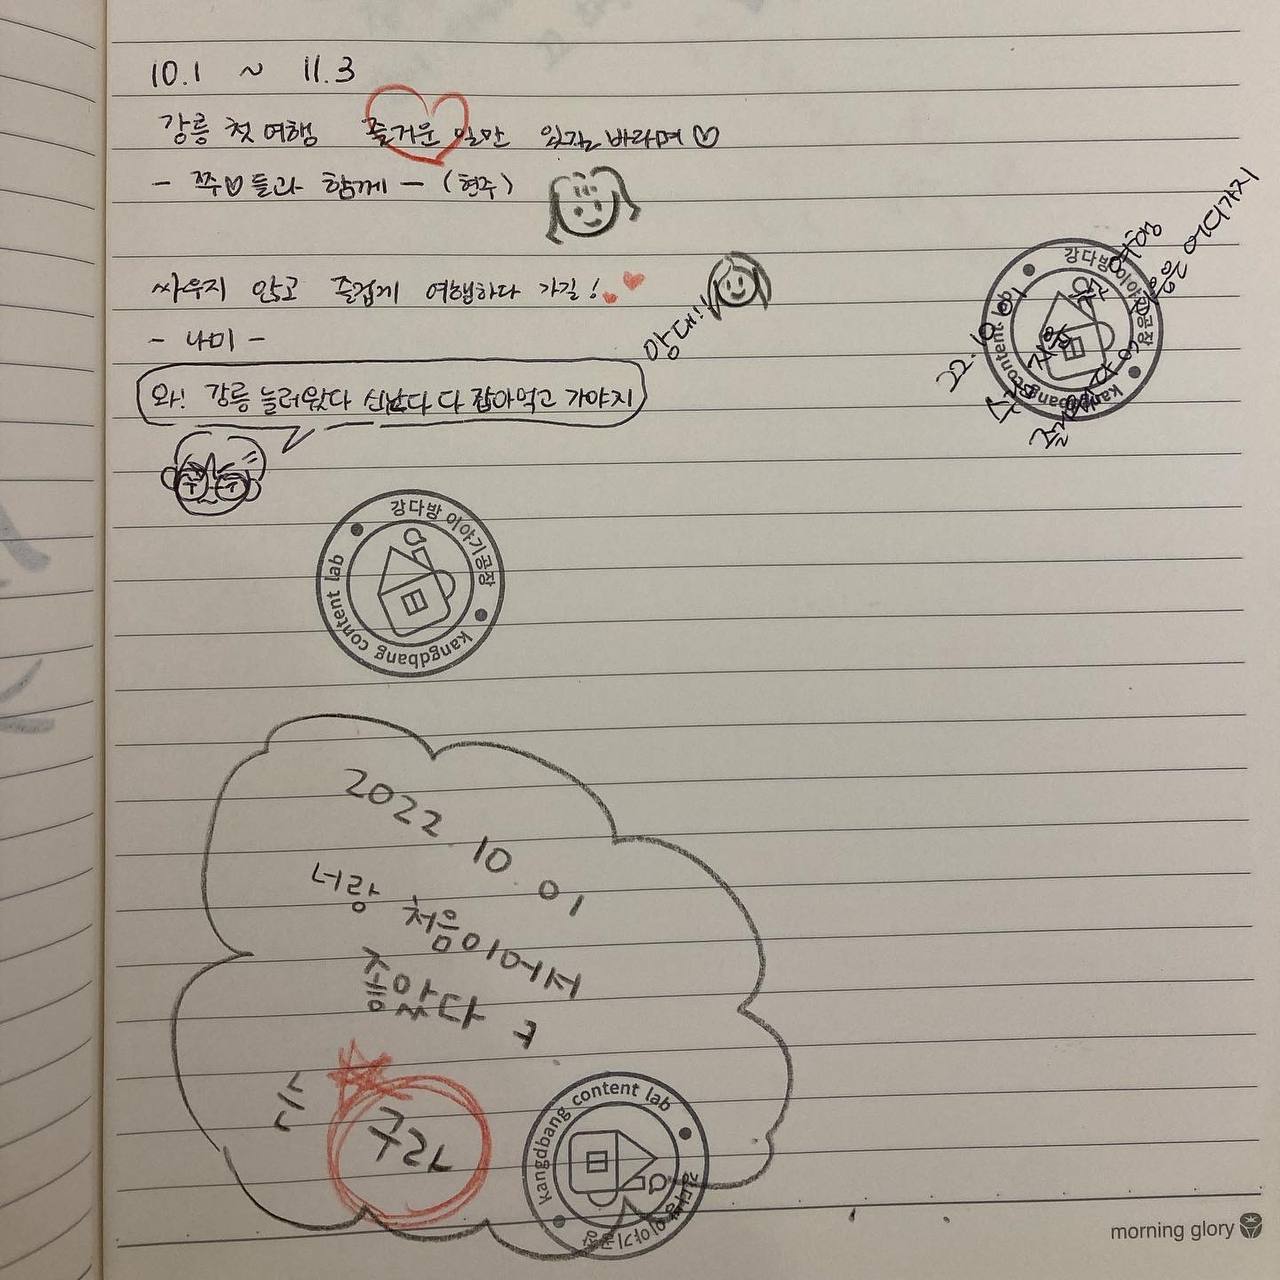 10.1 ~ 11.3
강릉 첫 여행 즐거운 일만 있길 바라며♡
- 쭈♡들과 함께 - (현주)
싸우지 않고 즐겁게 여행하다 가길!
- 나미 -
앙대!!
와! 강릉 놀러왔다 신난다 다 잡아먹고 가야지
강다방 이야기공장
kangdbang content lab
22.10.01
여행
어디가지
강다방 이야기공장
kangdbang content lab
2022 10 01
너랑 처음이어서
좋았다 ㅋ
는
구라
kangdbang content lab
강다방 이야기공장
morning glory